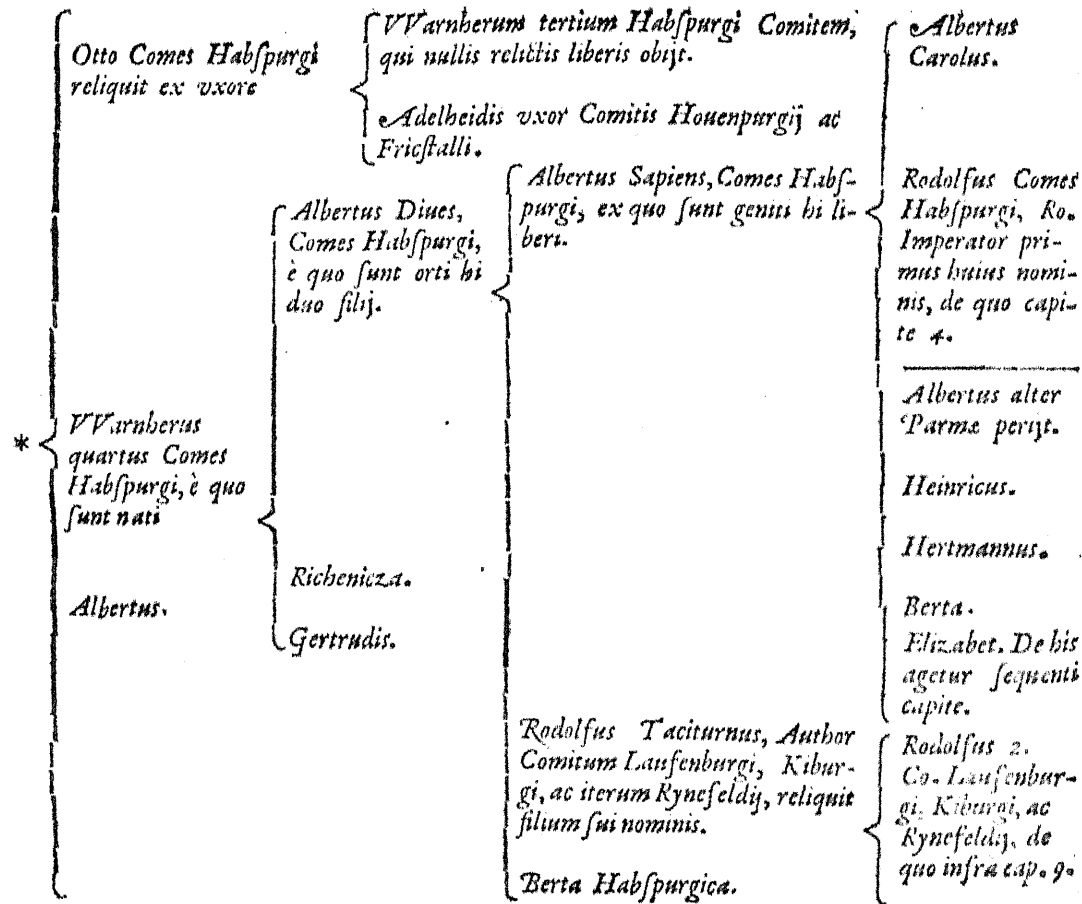 *
Otto Comes Habſpurgi
reliquit ex vxore
VVarnherum tertium Habſpurgi Comitem,
qui nullis relictis liberis obijt.
Adelheidis vxor Comitis Houenpurgij ac
Fricſtalli.
VVarnherus
quartus Comes
Habſpurgi, è quo
ſunt nati
Albertus.
Albertus Diues,
Comes Habſpurgi,
è quo ſunt orti hi
duo filij.
Richenicza.
Gertrudis.
Albertus Sapiens, Comes Habſ-
purgi, ex quo ſunt geniti hi li-
beri.
Rodolfus Taciturnus, Author
Comitum Laufenburgi, Kibur-
gi, ac iterum Rynefeldij, reliquit
filium ſui nominis.
Berta Habſpurgica.
Albertus
Carolus.
Rodolfus Comes
Habſpurgi, Ro.
Imperator pri-
mus huius nomi-
nis, de quo capi-
te 4.
Albertus alter
Parmæ perijt.
Heinricus.
Hertmannus.
Berta.
Elizabet. De his
agetur ſequenti
capite.
Rodolfus 2.
Co. Laufenbur-
gi, Kiburgi, ac
Rynefeldij, de
quo infra cap. 9.